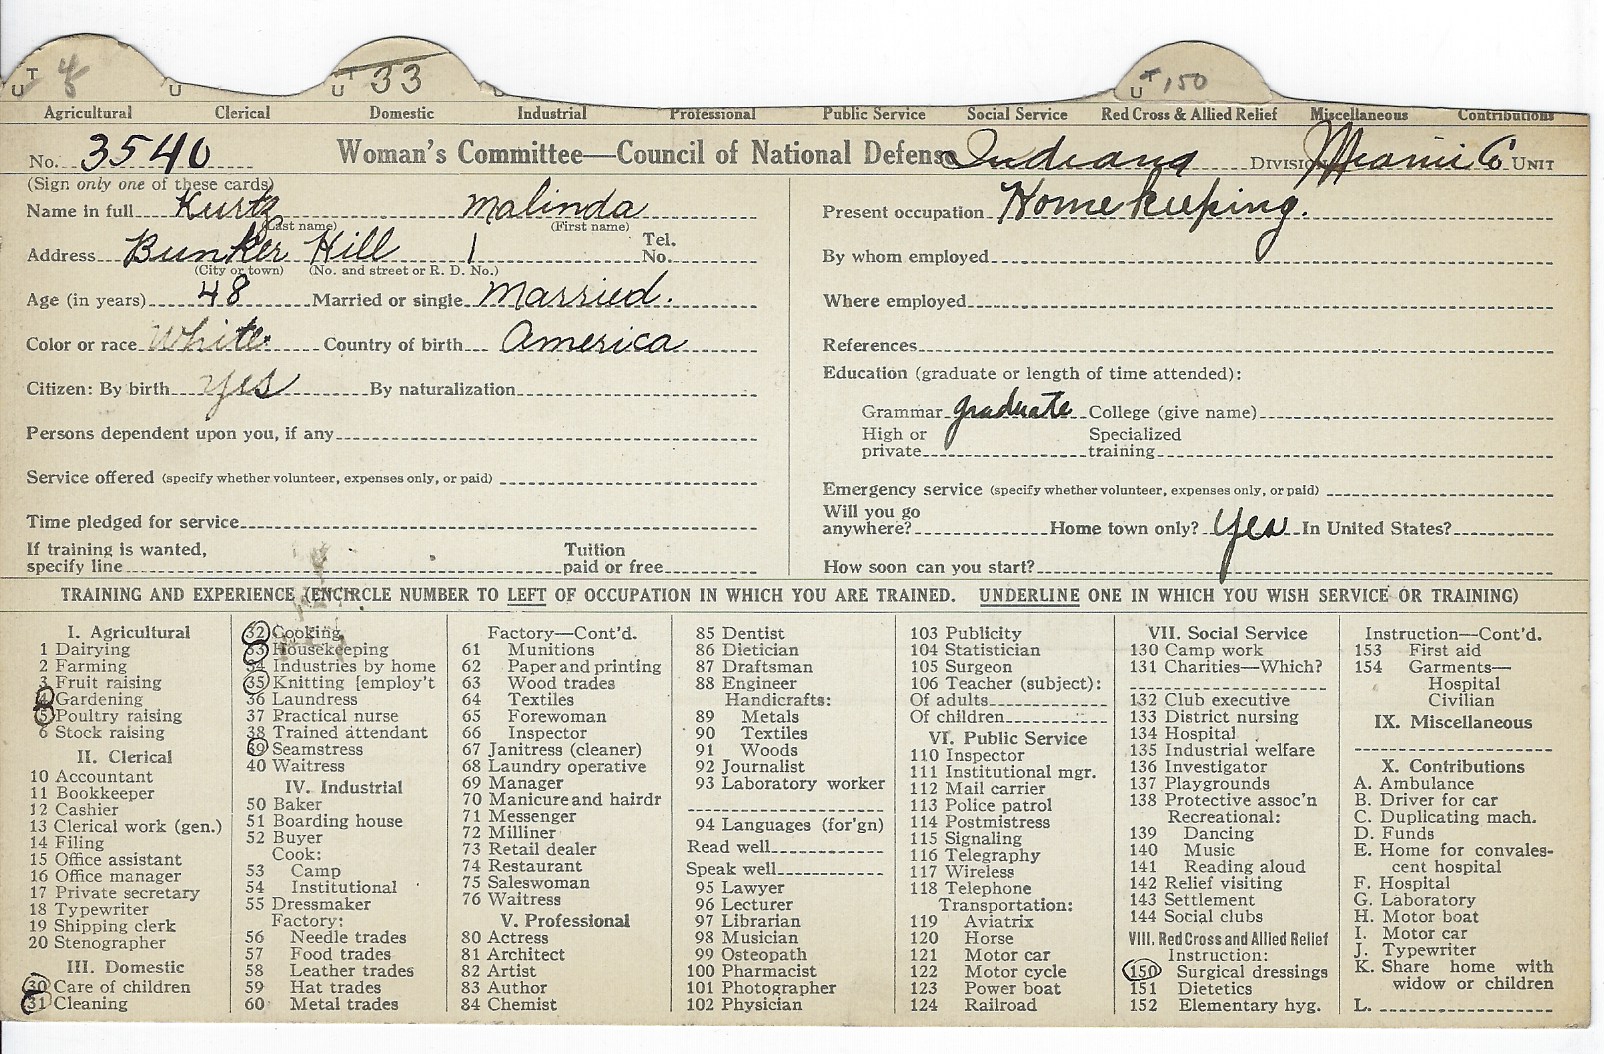 T U 4 U T U 33 U T U 150
Agricultural Clerical Domestic Industrial Professional Public Service Social Service Red Cross & Allied Relief Miscellaneous Contributions
No. 3540 Woman's Committee—Council of National Defense Indiana DIVISION Miami Co UNIT
(Sign only one of these cards)
Name in full Kurtz Malinda
(Last name) (First name)
Address Bunker Hill 1 Tel. No.
(City or town) (No. and street or R. D. No.)
Age (in years) 48 Married or single Married.
Color or race White. Country of birth America
Citizen: By birth yes By naturalization
Persons dependent upon you, if any
Service offered (specify whether volunteer, expenses only, or paid)
Time pledged for service
If training is wanted, specify line Tuition paid or free
Present occupation Homekeeping.
By whom employed
Where employed
References
Education (graduate or length of time attended):
Grammar graduate College (give name)
High or private Specialized training
Emergency service (specify whether volunteer, expenses only, or paid)
Will you go anywhere? Home town only? Yes In United States?
How soon can you start?
TRAINING AND EXPERIENCE (ENCIRCLE NUMBER TO LEFT OF OCCUPATION IN WHICH YOU ARE TRAINED. UNDERLINE ONE IN WHICH YOU WISH SERVICE OR TRAINING)
I. Agricultural
1 Dairying
2 Farming
3 Fruit raising
4 Gardening
5 Poultry raising
6 Stock raising
II. Clerical
10 Accountant
11 Bookkeeper
12 Cashier
13 Clerical work (gen.)
14 Filing
15 Office assistant
16 Office manager
17 Private secretary
18 Typewriter
19 Shipping clerk
20 Stenographer
III. Domestic
30 Care of children
31 Cleaning
32 Cooking
33 Housekeeping
34 Industries by home
35 Knitting [employ't
36 Laundress
37 Practical nurse
38 Trained attendant
39 Seamstress
40 Waitress
IV. Industrial
50 Baker
51 Boarding house
52 Buyer
Cook:
53 Camp
54 Institutional
55 Dressmaker
Factory:
56 Needle trades
57 Food trades
58 Leather trades
59 Hat trades
60 Metal trades
Factory—Cont'd.
61 Munitions
62 Paper and printing
63 Wood trades
64 Textiles
65 Forewoman
66 Inspector
67 Janitress (cleaner)
68 Laundry operative
69 Manager
70 Manicure and hairdr
71 Messenger
72 Milliner
73 Retail dealer
74 Restaurant
75 Saleswoman
76 Waitress
V. Professional
80 Actress
81 Architect
82 Artist
83 Author
84 Chemist
85 Dentist
86 Dietician
87 Draftsman
88 Engineer
Handicrafts:
89 Metals
90 Textiles
91 Woods
92 Journalist
93 Laboratory worker
94 Languages (for'gn)
Read well
Speak well
95 Lawyer
96 Lecturer
97 Librarian
98 Musician
99 Osteopath
100 Pharmacist
101 Photographer
102 Physician
103 Publicity
104 Statistician
105 Surgeon
106 Teacher (subject):
Of adults
Of children
VI. Public Service
110 Inspector
111 Institutional mgr.
112 Mail carrier
113 Police patrol
114 Postmistress
115 Signaling
116 Telegraphy
117 Wireless
118 Telephone
Transportation:
119 Aviatrix
120 Horse
121 Motor car
122 Motor cycle
123 Power boat
124 Railroad
VII. Social Service
130 Camp work
131 Charities—Which?
132 Club executive
133 District nursing
134 Hospital
135 Industrial welfare
136 Investigator
137 Playgrounds
138 Protective assoc'n
Recreational:
139 Dancing
140 Music
141 Reading aloud
142 Relief visiting
143 Settlement
144 Social clubs
VIII. Red Cross and Allied Relief
Instruction:
150 Surgical dressings
151 Dietetics
152 Elementary hyg.
Instruction—Cont'd.
153 First aid
154 Garments—
Hospital
Civilian
IX. Miscellaneous
X. Contributions
A. Ambulance
B. Driver for car
C. Duplicating mach.
D. Funds
E. Home for convales-
cent hospital
F. Hospital
G. Laboratory
H. Motor boat
I. Motor car
J. Typewriter
K. Share home with
widow or children
L.